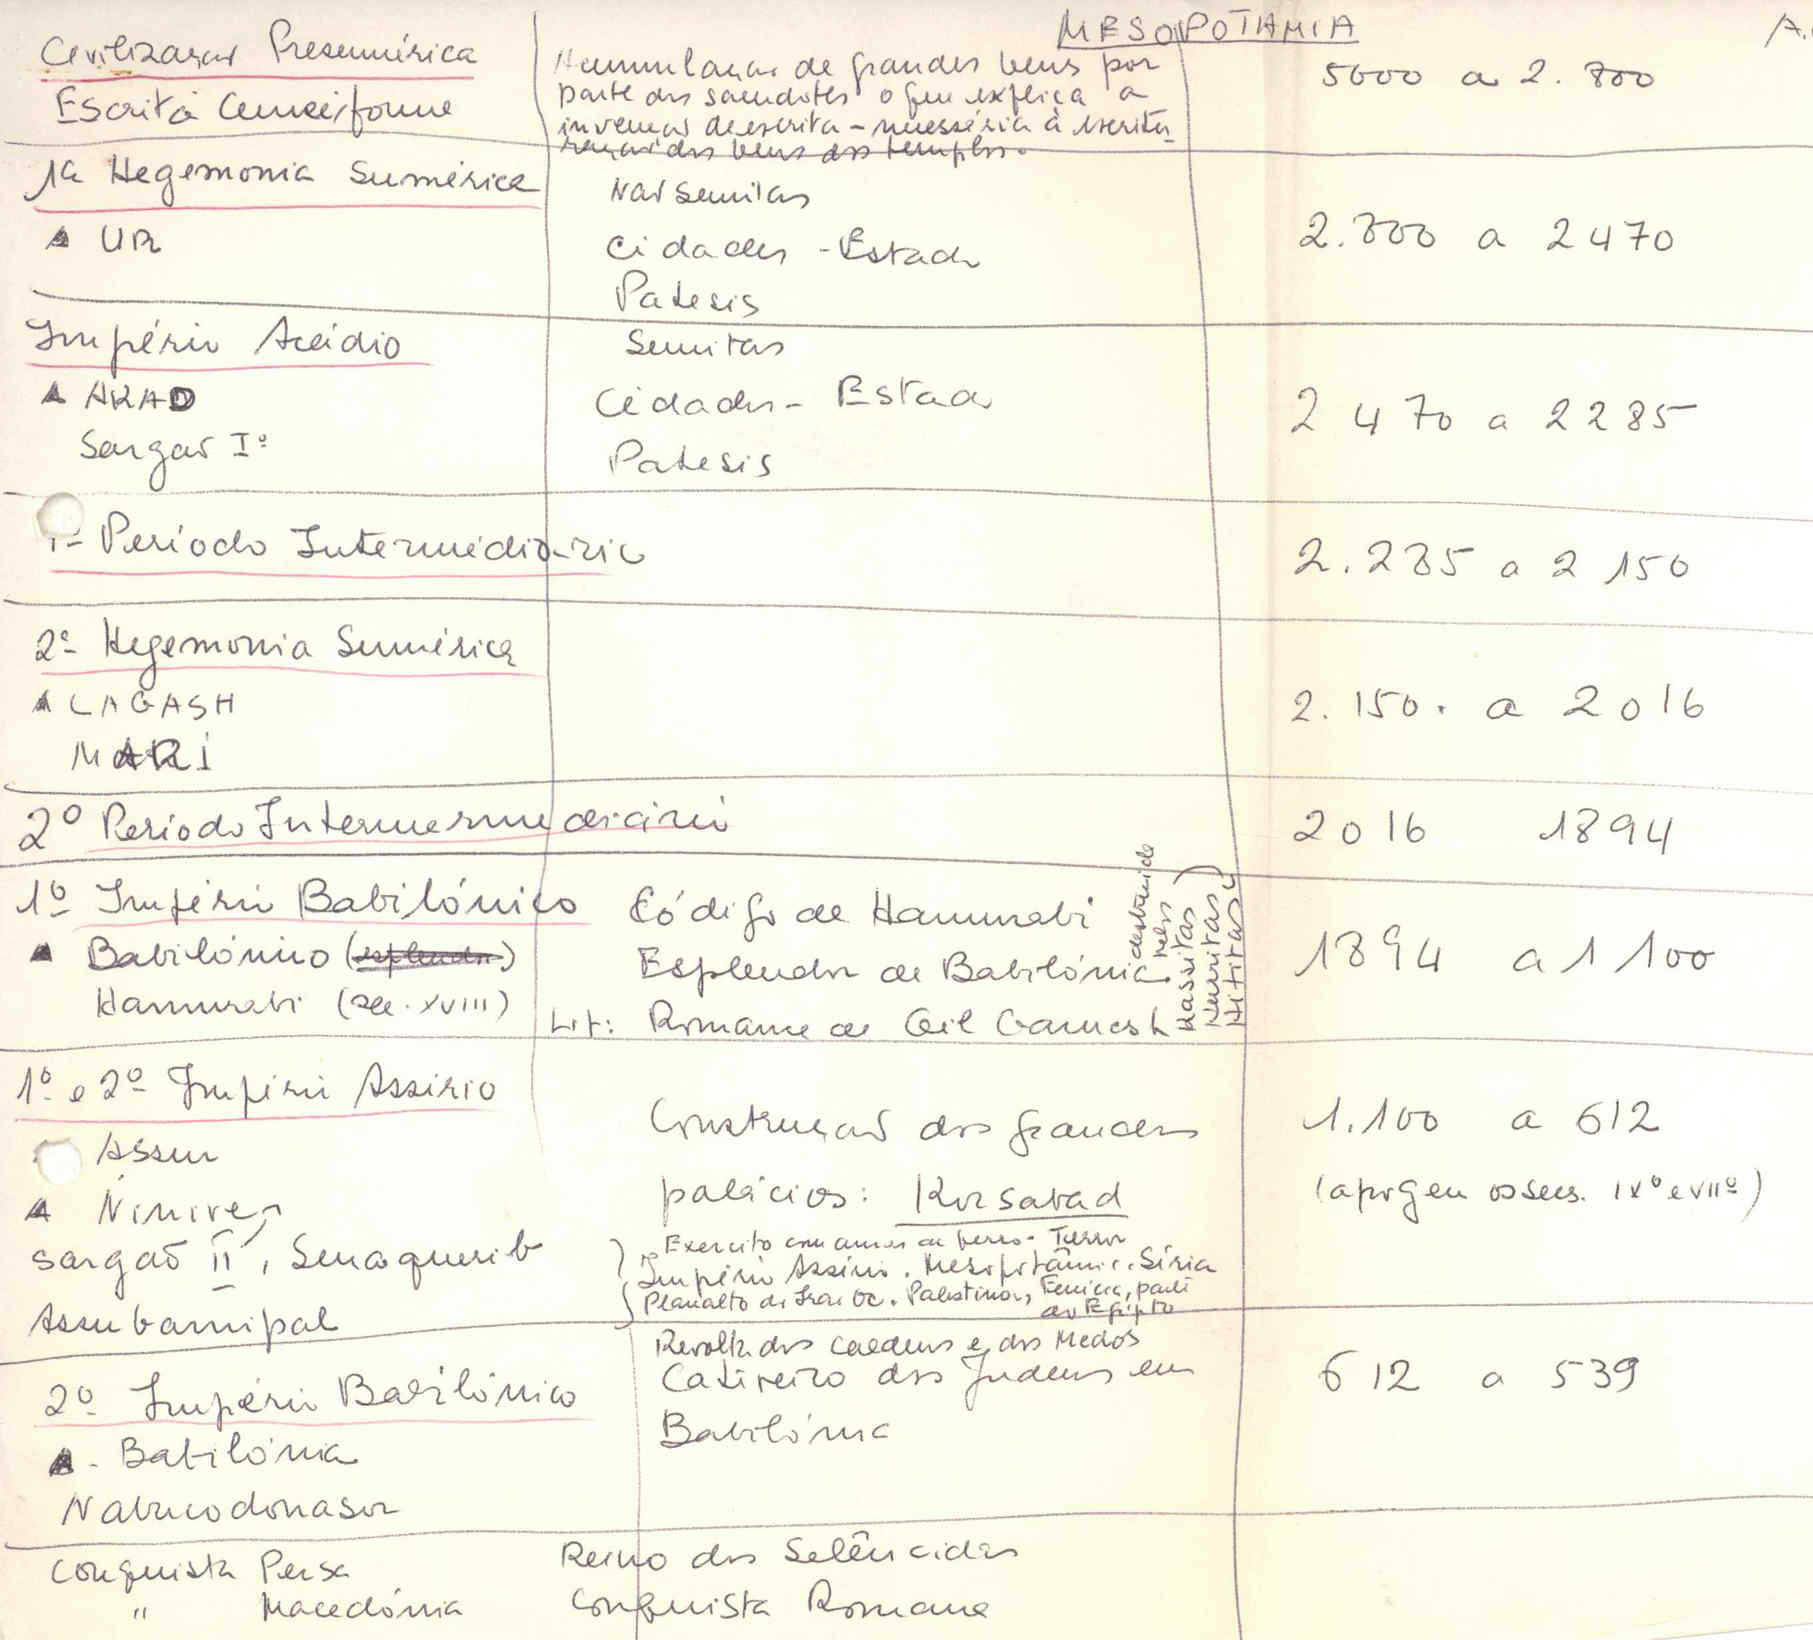 MESOPOTAMIA
A.
Civilização Presumérica
Escrita Cuneiforme
Acumulação de grandes bens por
parte dos sacerdotes o que explica a
invenção da escrita - necessária à escritu
ração dos bens dos templos.
5000 a 2.800
1ª Hegemonia Sumérica
▲ UR
Não semitas
Cidades - Estado
Patesis
2.800 a 2470
Império Acádio
▲ AKAD
Sargão Iº
Semitas
Cidades - Estado
Patesis
2470 a 2285
1º Período Intermédiário
2.285 a 2150
2ª Hegemonia Sumérica
▲ LAGASH
MARI
2.150. a 2016
2º Período Intermermediário
2016 1894
1º Império Babilónico
▲ Babilónio (esplendor)
Hamurabi (séc. XVIII)
Código de Hammrabi
Esplendor de Babilónia
Lit: Romance de Gil Gamesh
destruida
pelos
Kassitas
Hurritas
Hititas
1894 a 1100
1º e 2º Império Assírio
Assur
▲ Ninive
Sargão II, Senaquerib
Assubanipal
Construção dos grandes
palácios: Korsabad
Exercito com armas de ferro - Terror
Império Assírio. Mesopotâmia. Síria
Planalto do Irão Oc. Palestina, Fenícia, parte
do Egipto
1.100 a 612
(apogeu os secs. IXº e VIIº)
2º Império Babilónico
▲ - Babilónia
Nabucodonasor
Revolta dos Caldeus e dos Medos
Cativeiro dos Judeus em
Babilónia
612 a 539
Conquista Persa
" Macedónia
Reino dos Selêucidas
Conquista Romana